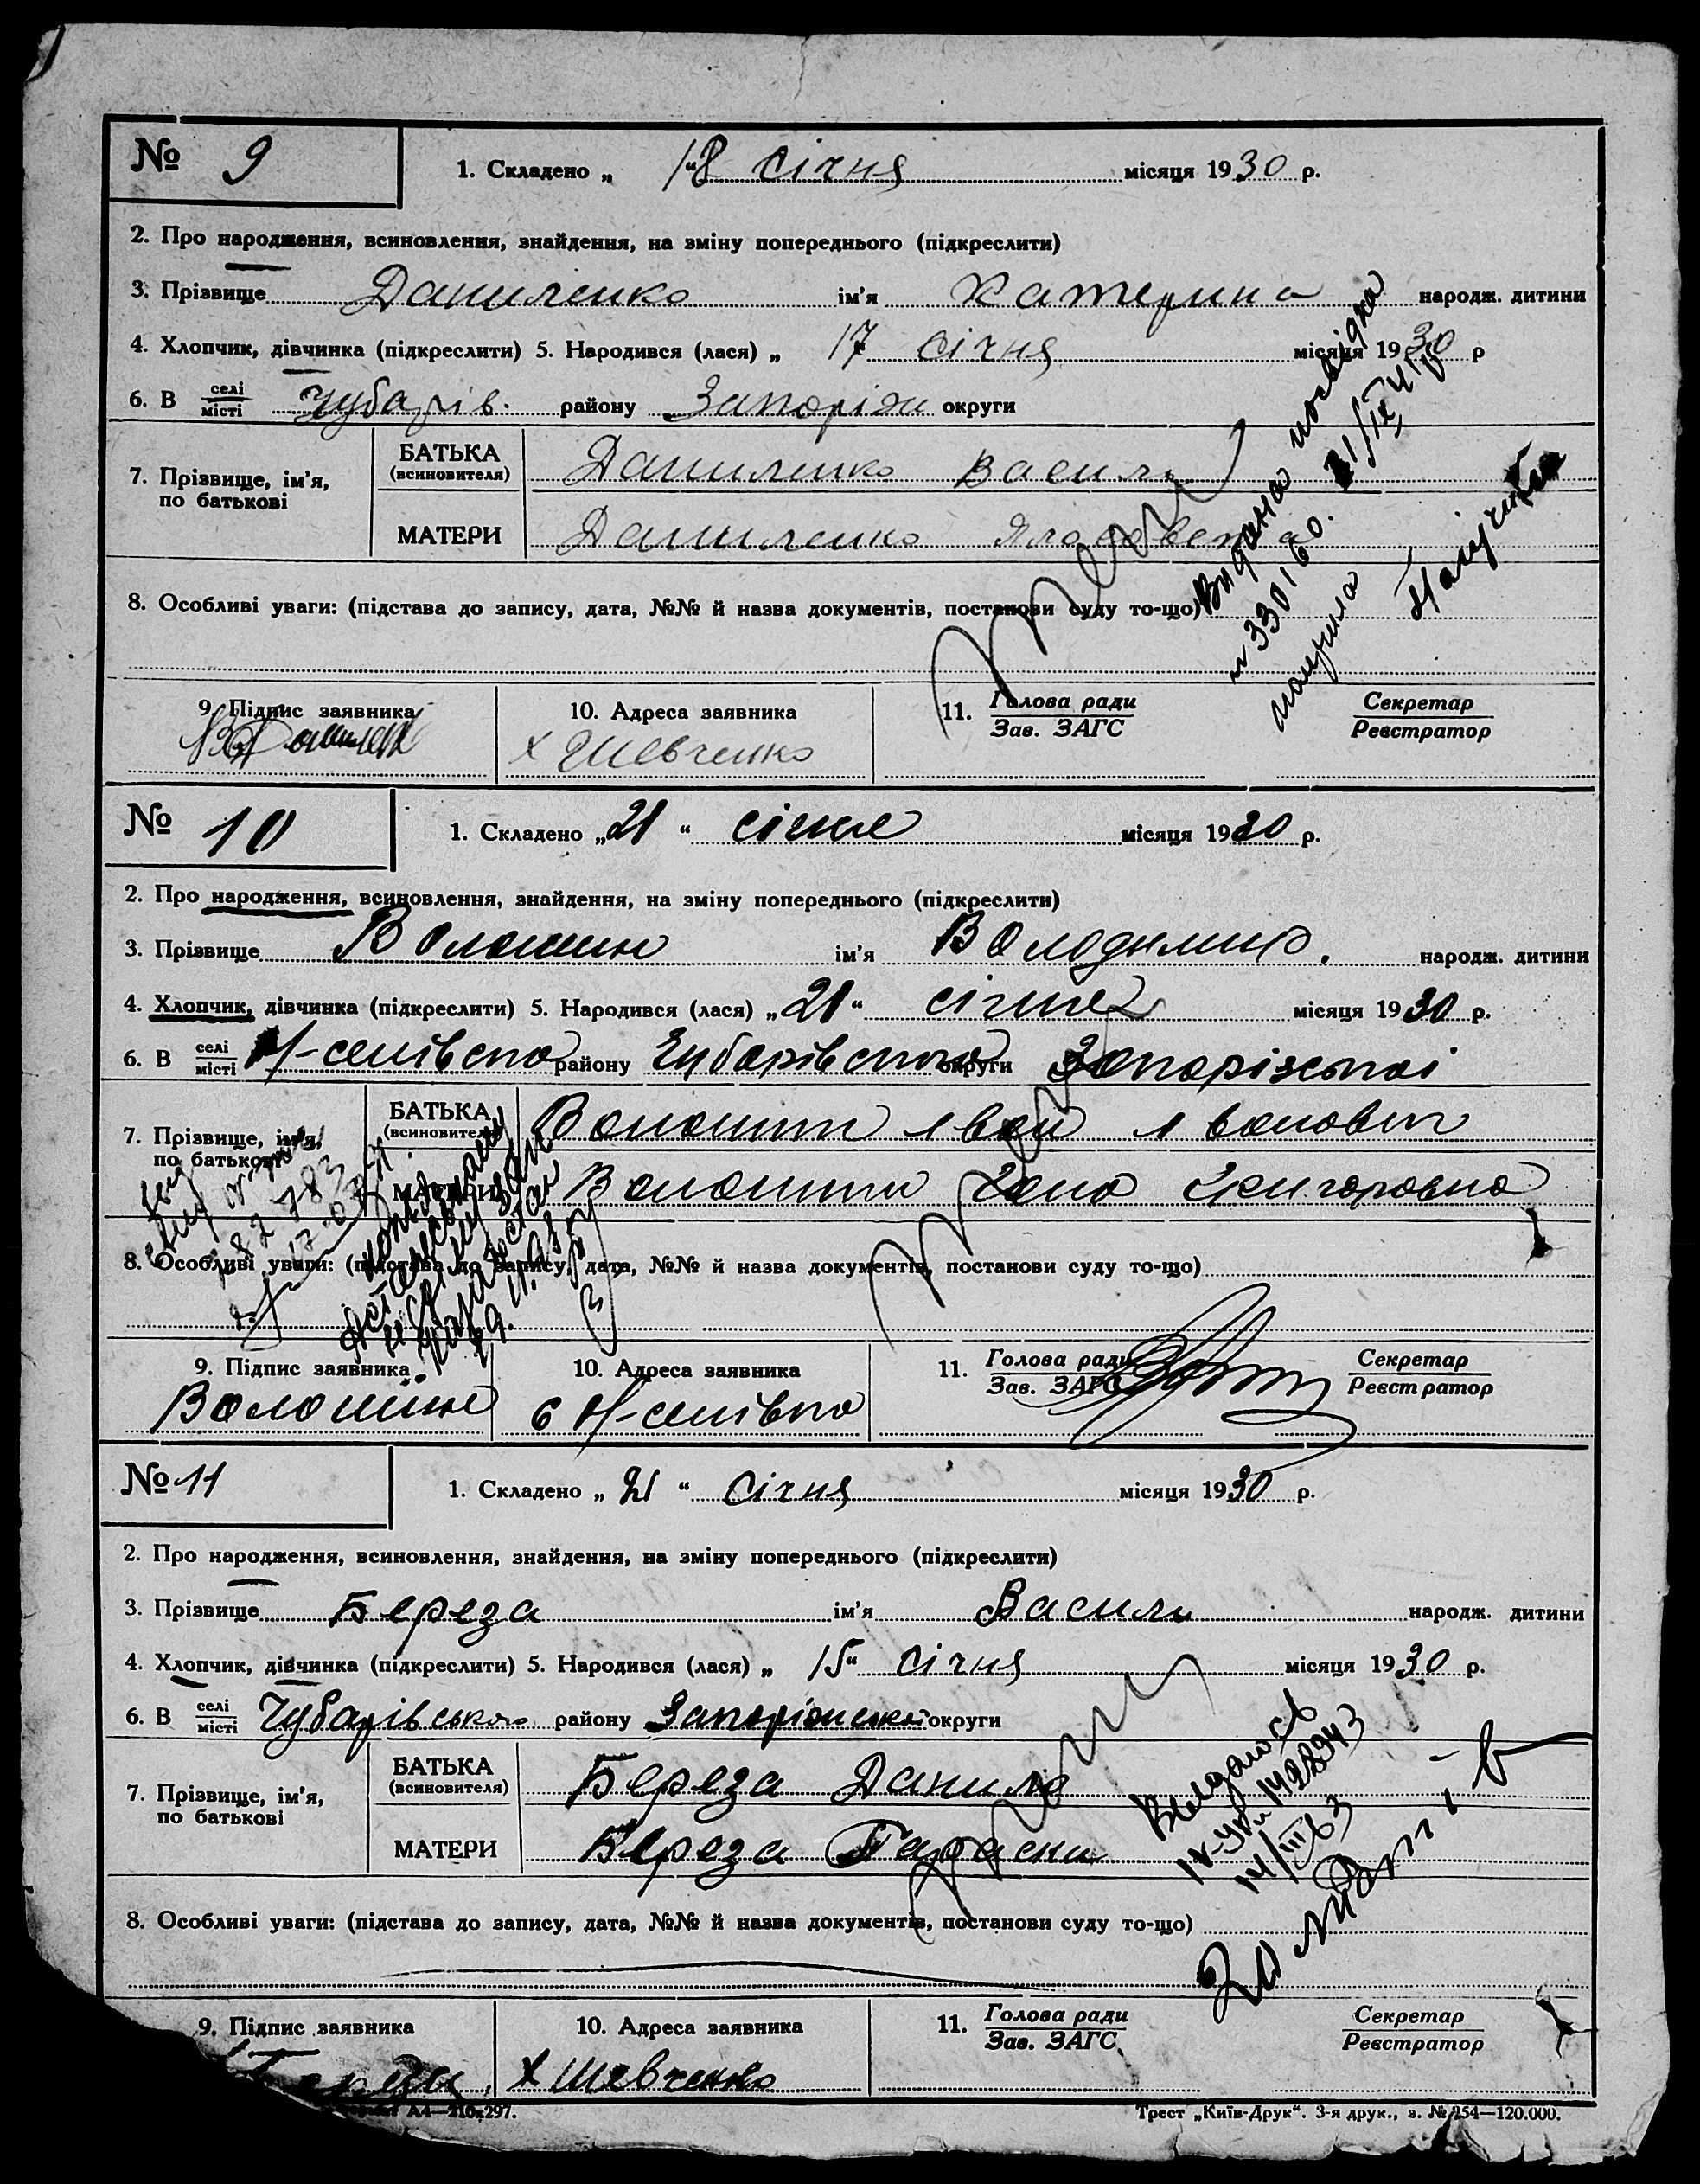 № 9
1. Складено „ 18 січня місяця 1930 р.
2. Про народження, всиновлення, знайдення, на зміну попереднього (підкреслити)
3. Прізвище Даниленко ім'я Катерина народж. дитини
4. Хлопчик, дівчинка (підкреслити) 5. Народився (лася) „ 17 січня місяця 1930 р
6. В селі місті Чубарів. району Запоріж округи
7. Прізвище, ім'я, по батькові
БАТЬКА (всиновителя) Даниленко Василь
МАТЕРИ Даниленко Ялосовета
8. Особливі уваги: (підстава до запису, дата, №№ й назва документів, постанови суду то-що)
Видана посвідка
н 330160. 31/IX 41 р
получила
9. Підпис заявника
10. Адреса заявника
11. Голова ради Зав. ЗАГС
Секретар Реєстратор
х Шевченко
№ 10
1. Складено „21“ січня місяця 1930 р.
2. Про народження, всиновлення, знайдення, на зміну попереднього (підкреслити)
3. Прізвище Волошин ім'я Володимир. народж. дитини
4. Хлопчик, дівчинка (підкреслити) 5. Народився (лася) „21“ січня місяця 1930 р.
6. В селі місті Н-селівка району Чубарівського округи Запорізської
7. Прізвище, ім'я, по батькові
БАТЬКА (всиновителя) Волошин Іван Іванович
МАТЕРИ Волошин Григоровна
8. Особливі уваги: (підстава до запису, дата, №№ й назва документів, постанови суду то-що)
9. Підпис заявника
10. Адреса заявника
11. Голова ради Зав. ЗАГС
Секретар Реєстратор
Волошин
с Н-селівка
№ 11
1. Складено „ 21 “ січня місяця 1930 р.
2. Про народження, всиновлення, знайдення, на зміну попереднього (підкреслити)
3. Прізвище Береза ім'я Василь народж. дитини
4. Хлопчик, дівчинка (підкреслити) 5. Народився (лася) „ 15“ січня місяця 1930 р.
6. В селі місті Чубарівського району Запоріжської округи
7. Прізвище, ім'я, по батькові
БАТЬКА (всиновителя) Береза Данило
МАТЕРИ Береза Параска
Выдалось
1428943
14/III 63
8. Особливі уваги: (підстава до запису, дата, №№ й назва документів, постанови суду то-що)
9. Підпис заявника
10. Адреса заявника
11. Голова ради Зав. ЗАГС
Секретар Реєстратор
х Шевченко
А4—210×297.
Трест „Київ-Друк“. 3-я друк., з. № 254—120.000.